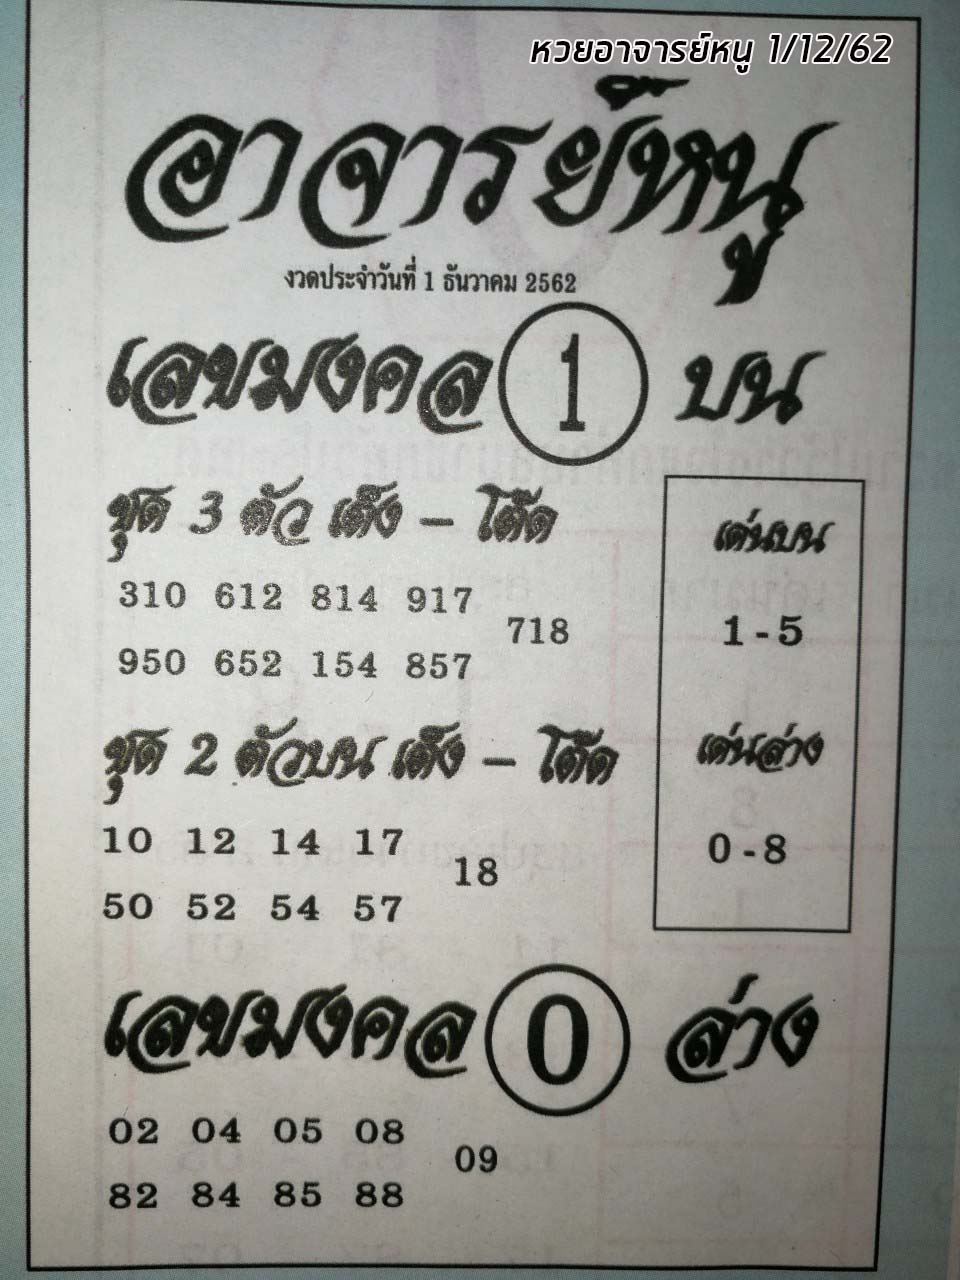 หวยอาจารย์หนู 1/12/62
อาจารย์หนู
งวดประจำวันที่ 1 ธันวาคม 2562
เลขมงคล 1 บน
ชุด 3 ตัว เต็ง – โต๊ด
310 612 814 917
718
950 652 154 857
เด่นบน
1 - 5
ชุด 2 ตัวบน เต็ง – โต๊ด
10 12 14 17
18
50 52 54 57
เด่นล่าง
0 - 8
เลขมงคล 0 ล่าง
02 04 05 08
09
82 84 85 88